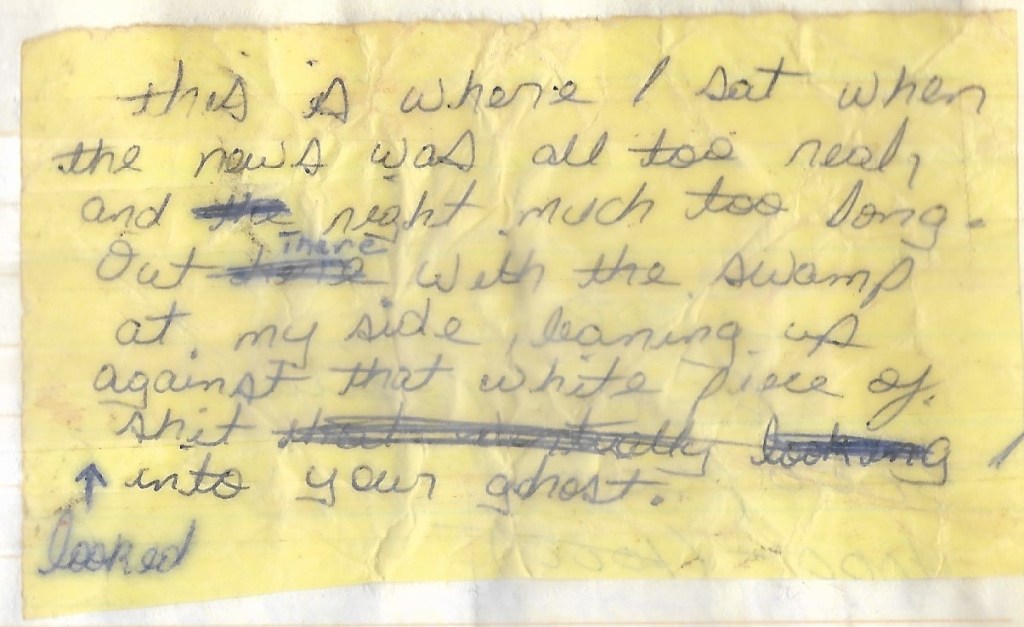 this is where I sat when
the news was all too real,
and the night much too long.
Out There with the swamp
at my side, leaning up
against that white piece of
shit that eventually looking I
into your ghost.
looked